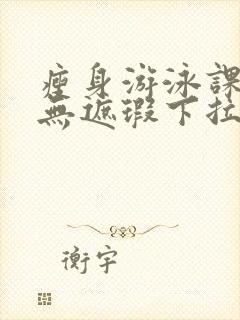 瘦身游泳課
無遮瑕下拉
衡宇